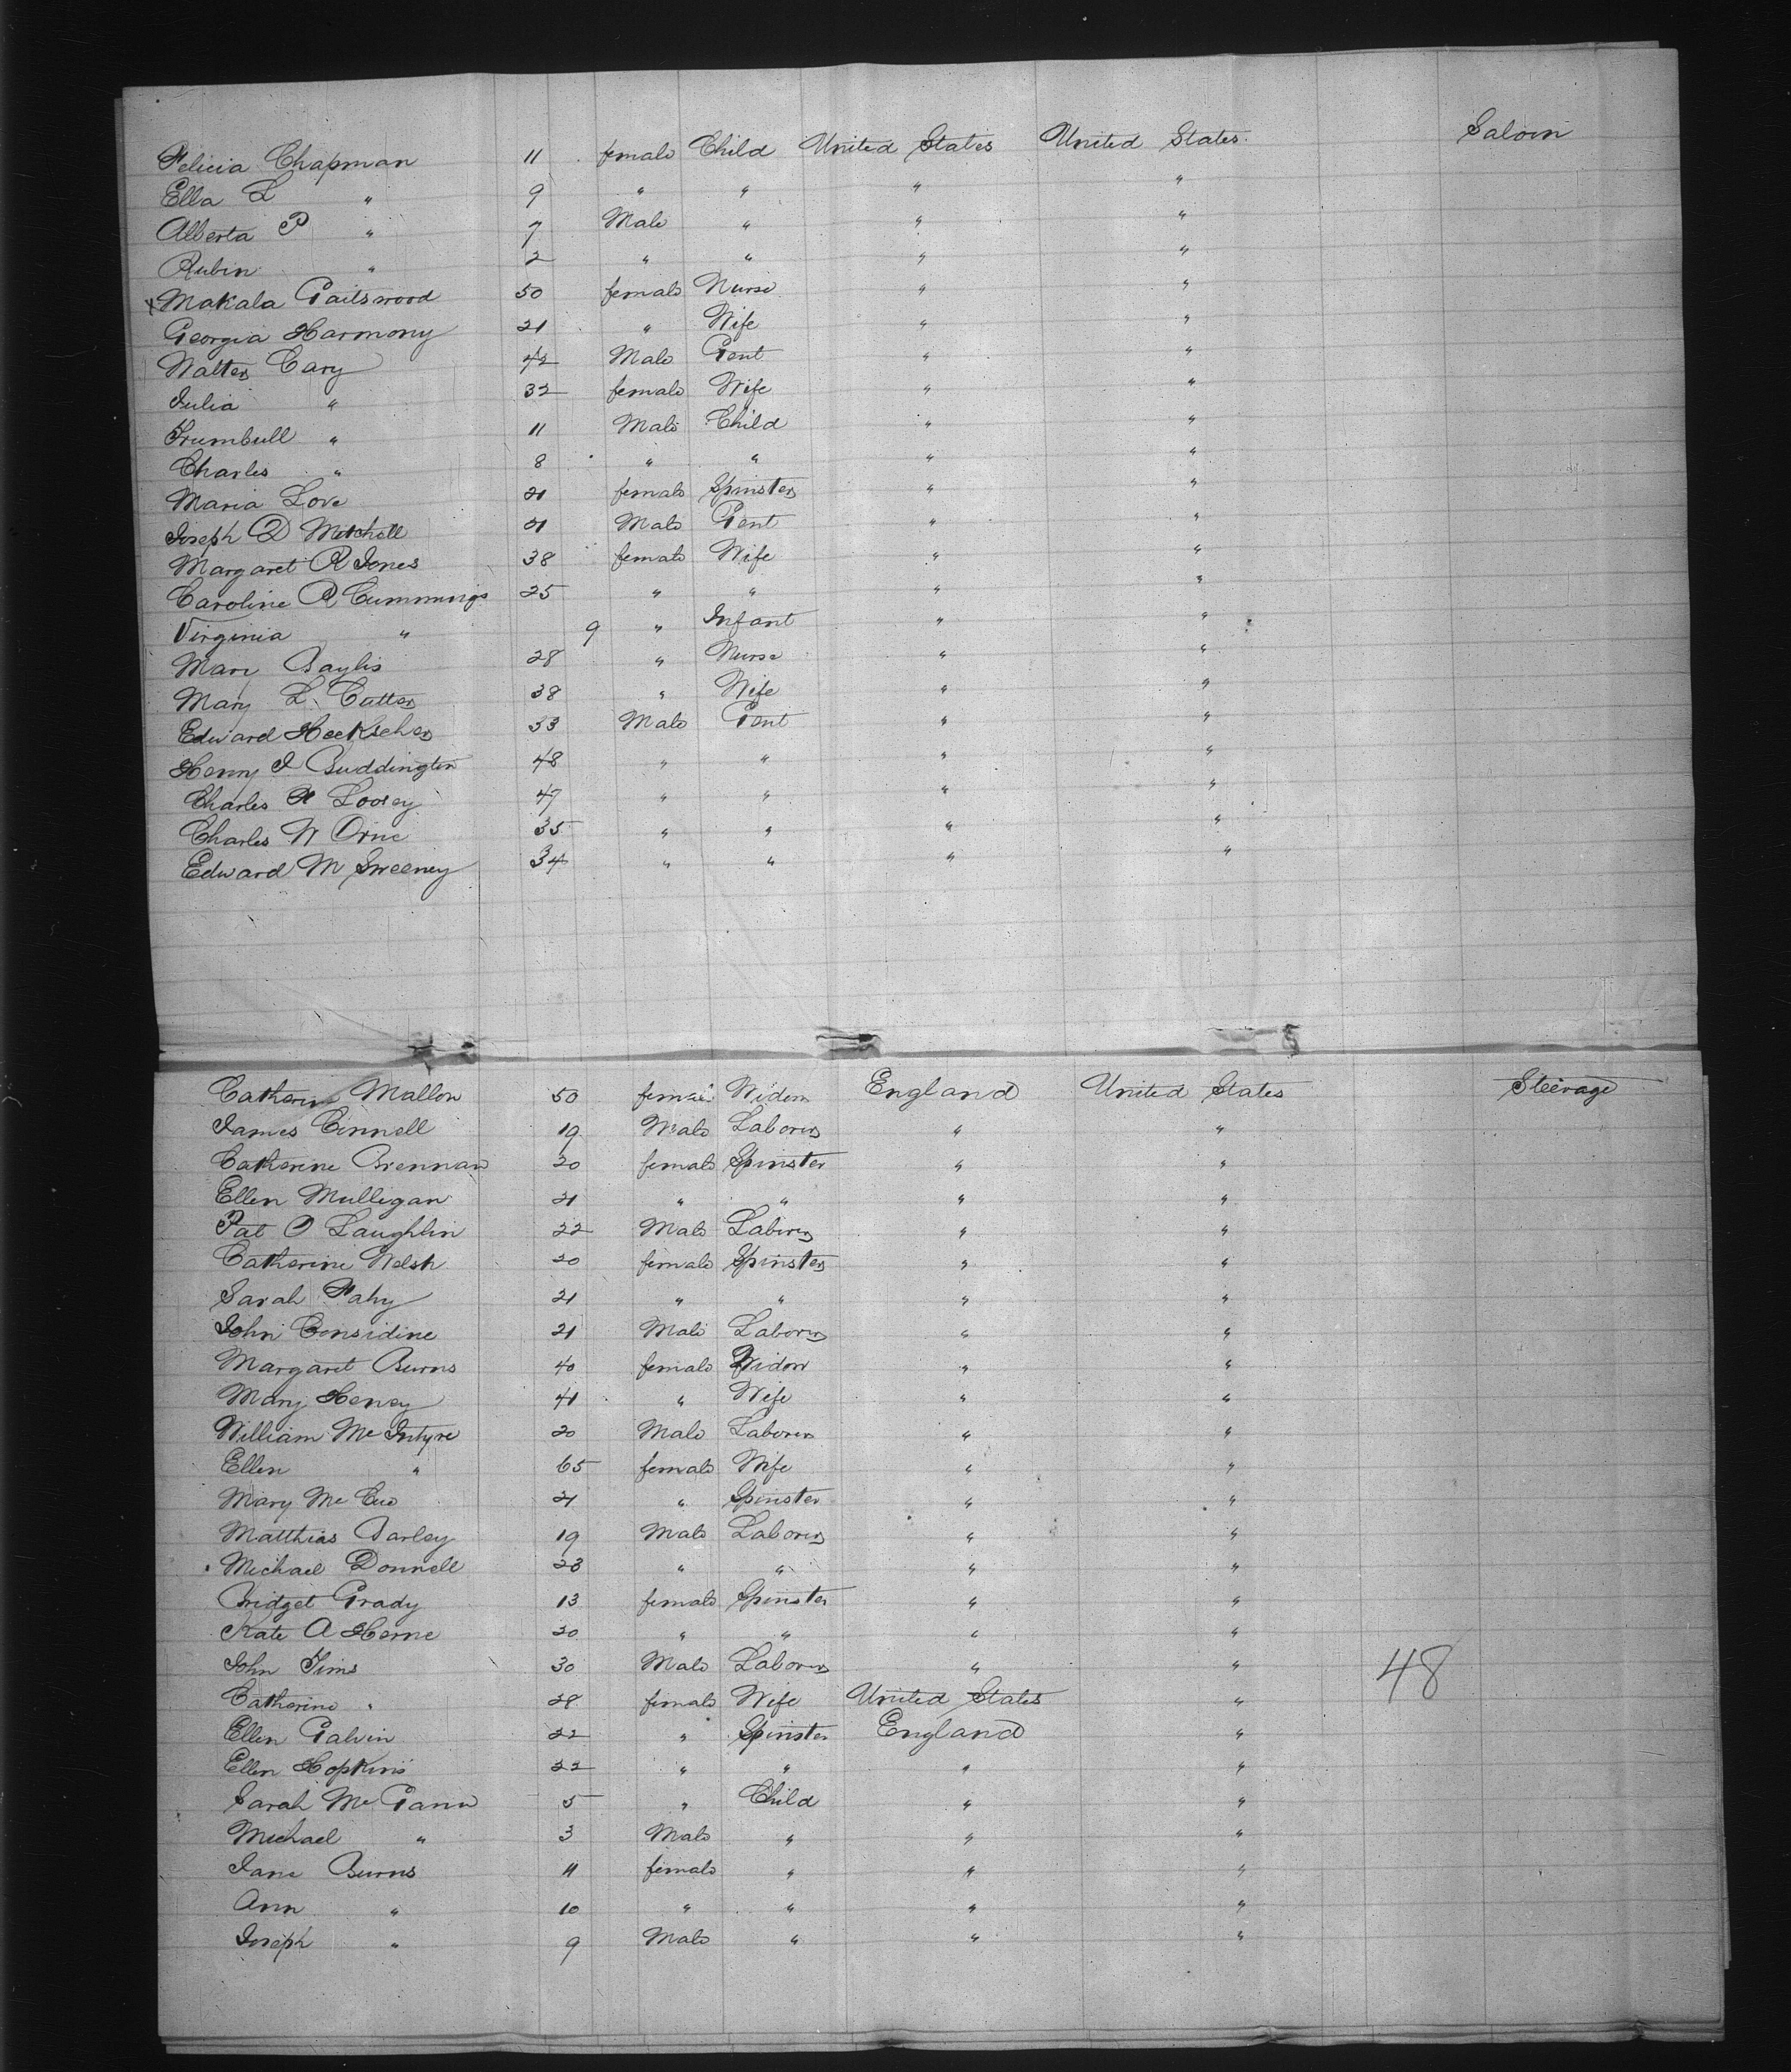 Felicia Chapman 11 female Child United States United States. Saloon
Ella L " 9 " " " "
Alberta P " 7 Male " " "
Rubin " 2 " " " "
Makala Gailswood 50 female Nurse " "
Georgia Harmony 21 " Wife " "
Walter Cary 42 Male Gent " "
Julia " 32 female Wife " "
Trumbull " 11 Male Child " "
Charles " 8 " " " "
Maria Love 21 female Spinster " "
Joseph D Mitchell 21 Male Gent " "
Margaret R Jones 38 female Wife " "
Caroline R Cummings 25 " " " "
Virginia " 9 " Infant " "
Mary Baylis 28 " Nurse " "
Mary L. Cutter 38 " Wife " "
Edward Heckscher 33 Male Gent " "
Henry I Buddington 48 " " " "
Charles F Loosey 47 " " " "
Charles W Orne 35 " " " "
Edward M Sweeney 34 " " " "
Catherine Mallon 50 female Widow England United States Steerage
James Connell 19 Male Laborer " "
Catherine Brennan 20 female Spinster " "
Ellen Mulligan 21 " " " "
Pat O Laughlin 22 Male Laborer " "
Catherine Welsh 20 female Spinster " "
Sarah Fahy 21 " " " "
John Considine 21 Male Laborer " "
Margaret Burns 40 female Widow " "
Mary Heney 41 " Wife " "
William Mc Intyre 20 Male Laborer " "
Ellen " 65 female Wife " "
Mary Mc Cue 21 " Spinster " "
Matthias Barley 19 Male Laborer " "
Michael Donnell 23 " " " "
Bridget Grady 13 female Spinster " "
Kate A Herne 20 " " " "
John Tims 30 Male Laborer " " 48
Catherine " 28 female Wife United States "
Ellen Galvin 22 " Spinster England "
Ellen Hopkins 22 " " " "
Sarah Mc Gann 5 " Child " "
Michael " 3 Male " " "
Jane Burns 11 female " " "
Ann " 10 " " " "
Joseph " 9 Male " " "